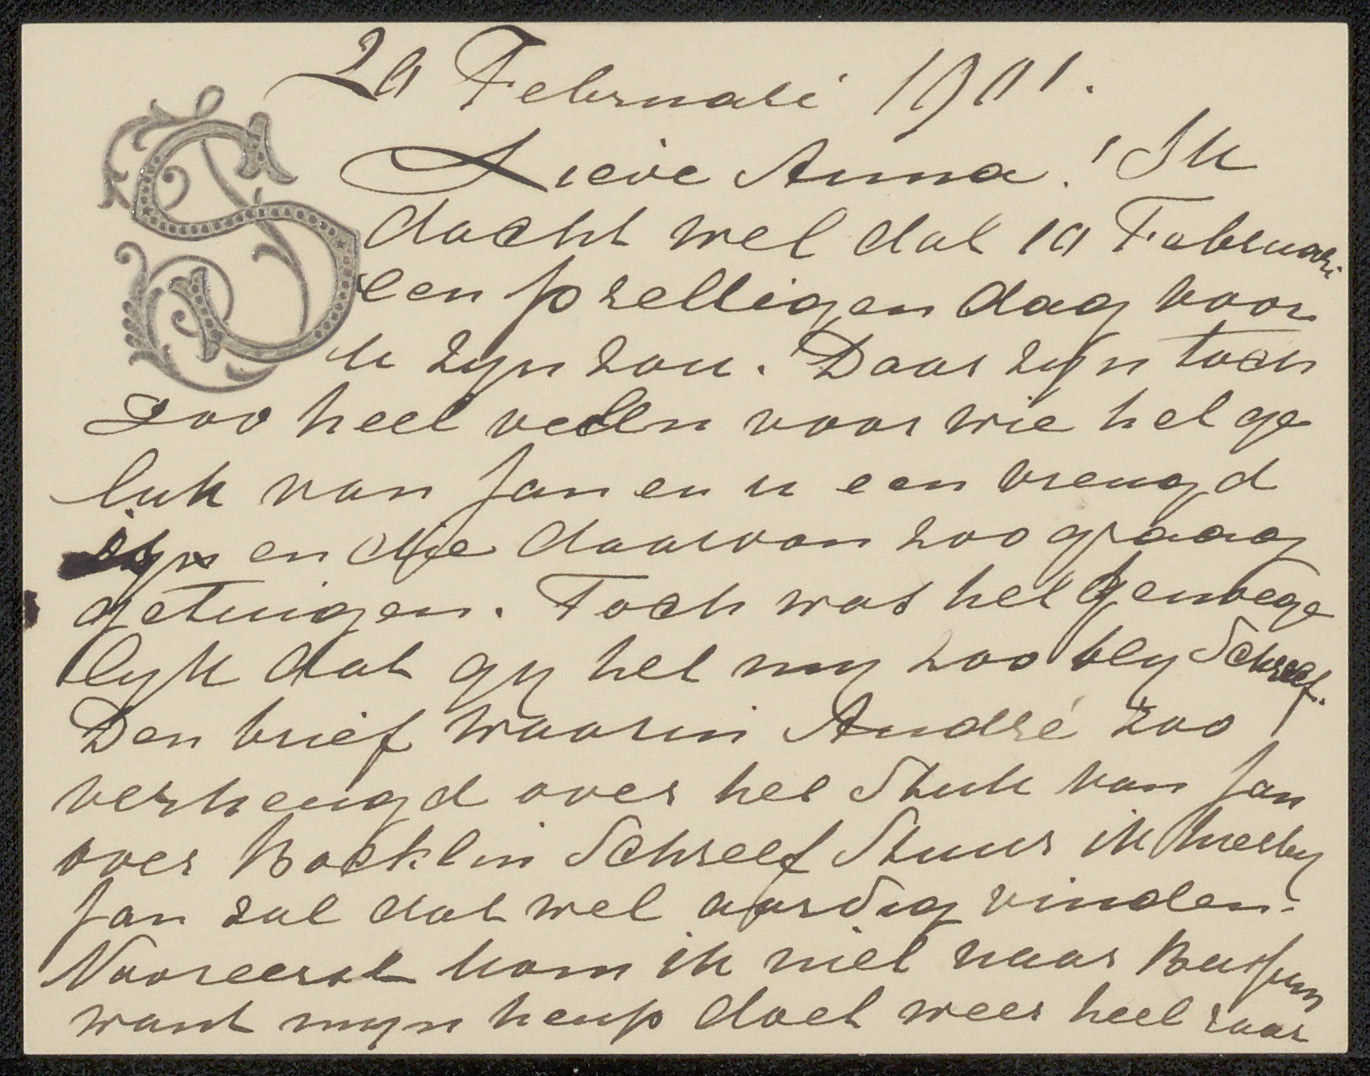 20 Februari 1901.
Lieve Anna! Ik
dacht wel dat 19 Februari
een prettigen dag voor
u zijn zou. Daar zijn toch
zoo heel veelen voor wie het ge
luk van Jan en u een vreugd
zijn en die daarvan zoo graag
getuigen. Toch was het genoege
lijk dat gij het mij zoo blij schreef.
Den brief waarin André zoo
verheugd over het Stuk van Jan
over Bocklin Schreef Stuur ik hierbij
Jan zal dat wel aardig vinden.
Vooreerst kom ik niet naar Bussum
want mijn heup doet weer heel raar